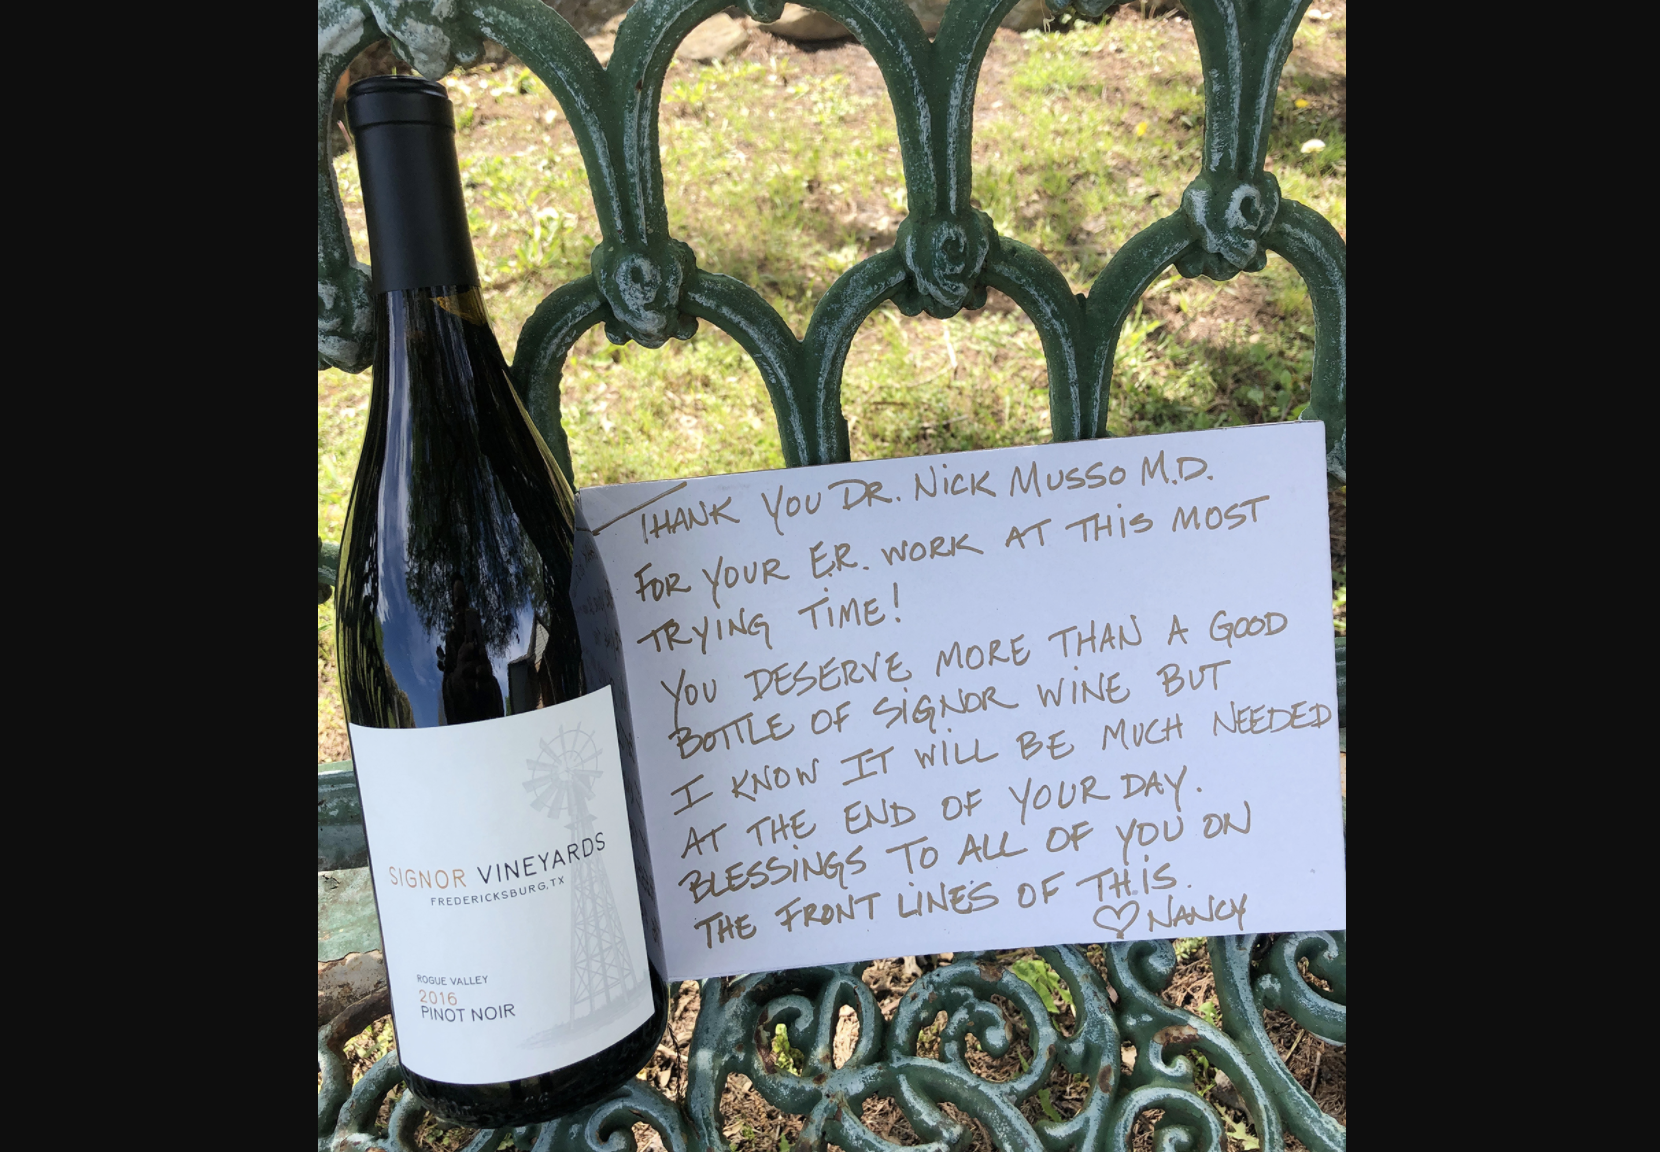 THANK YOU DR. NICK MUSSO M.D.
FOR YOUR E.R. WORK AT THIS MOST
TRYING TIME!
YOU DESERVE MORE THAN A GOOD
BOTTLE OF SIGNOR WINE BUT
I KNOW IT WILL BE MUCH NEEDED
AT THE END OF YOUR DAY.
BLESSINGS TO ALL OF YOU ON
THE FRONT LINES OF THIS.
♡ NANCY
SIGNOR VINEYARDS
FREDERICKSBURG, TX
ROGUE VALLEY
2016
PINOT NOIR